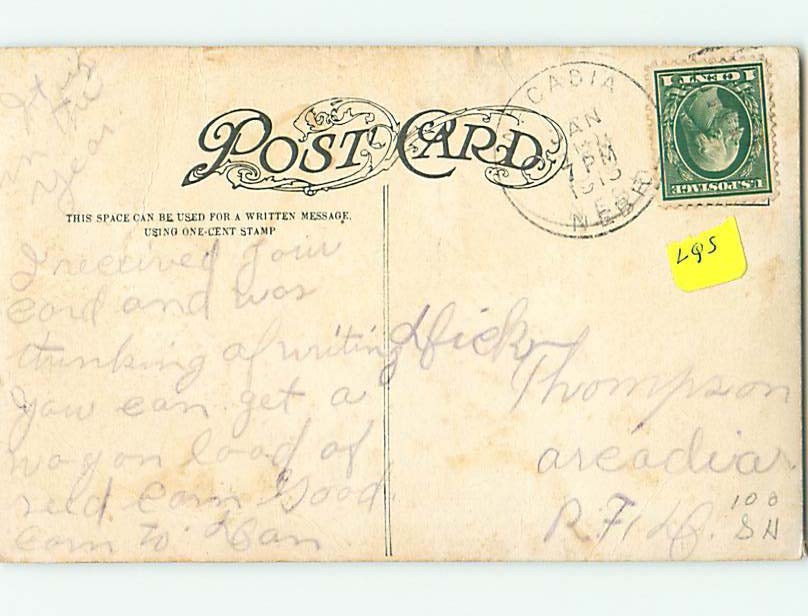 It is
in
year
POST CARD
THIS SPACE CAN BE USED FOR A WRITTEN MESSAGE,
USING ONE-CENT STAMP
I received your
card and was
thinking of writing
you can get a
wagon load of
seed corn Good
corn to Dan
CADIA
AN
7 PM
NEBR
1 CENT 1
U.S. POSTAGE
LQS
Dick
Thompson
arcadia
R.F.D.
100
SH